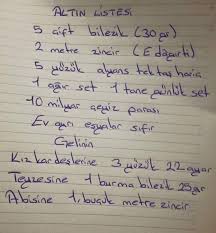 ALTIN LİSTESİ
5 çift bilezik (30 gr)
2 metre zincir (Ezgarti)
5 yüzük alyans tektaş hariç
1 ağır set 1 tane günlük set
10 milyar çeyiz parası
Ev ayrı eşyalar sıfır
Gelinin
Kız kardeşlerine 3 yüzük 22 ayar
Teyzesine 1 burma bilezik 25 gr
Abisine 1,buçuk metre zincir